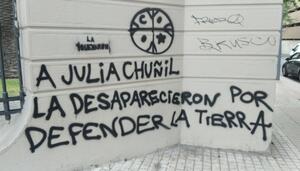 LA
A JULIA CHUÑIL
LA DESAPARECIERON POR
DEFENDER LA TIERRA